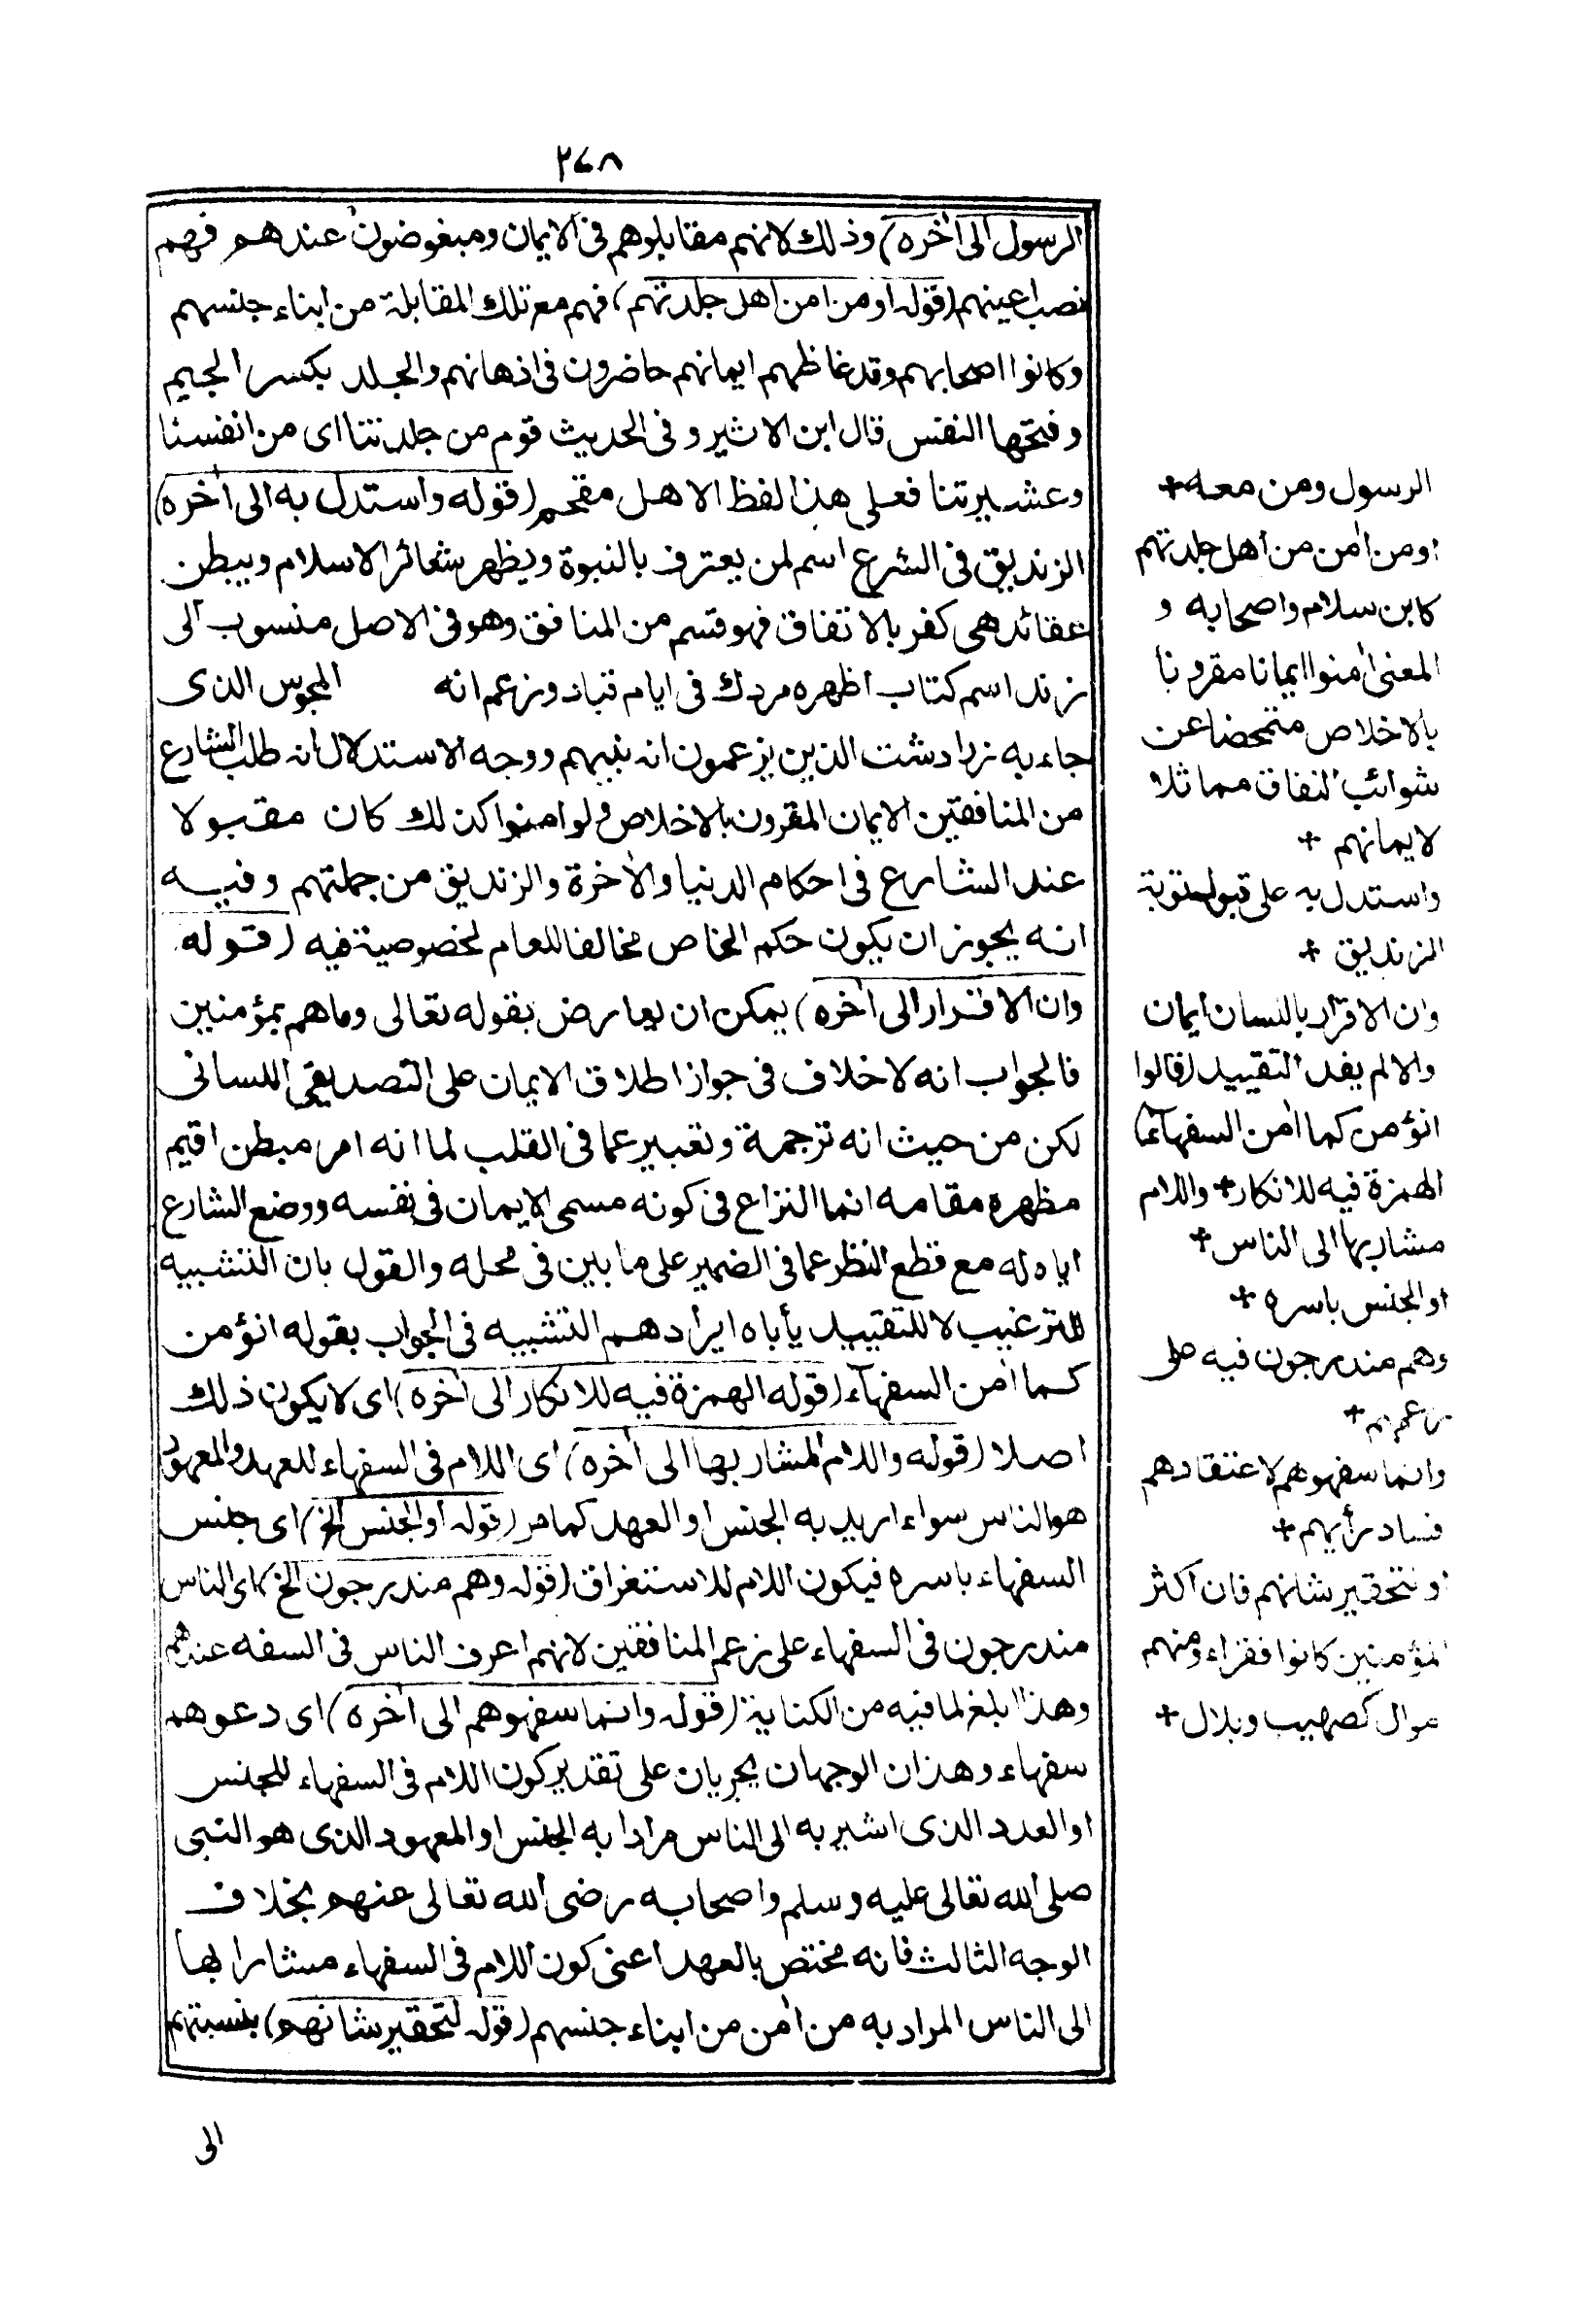 ٢٤٨
الرسول الى أخره) وذلك لانهم مقابلوهم فى الايمان ومبغوضون عندهم فهم
نصب اعينهم (قوله او من امن من اهل جلدتهم) فهم مع تلك المقابلة من ابناء جنسهم
وكانوا اصحابهم وقد غاظهم ايمانهم حاضرون فى اذهانهم والجلد بكسر الجيم
وفتحها النفس قال ابن الاثير وفى الحديث قوم من جلدتنا اى من انفسنا
وعشيرتنا فعلى هذا لفظ الاهل مقحم (قوله واستدل به الى أخره)
الزنديق فى الشرع اسم لمن يعترف بالنبوة ويظهر شعائر الاسلام ويبطن
عقائد هى كفر بالاتفاق فهو قسم من المنافق وهو فى الاصل منسوب الى
زند اسم كتاب اظهره مردك فى ايام قباد وزعم انه المجوس الذى
جاء به زرادشت الذين يزعمون انه نبيهم ووجه الاستدلال انه طلب الشارع
من المنافقين الايمان المقرون بالاخلاص ولو امنوا كذلك كان مقبولا
عند الشارع فى احكام الدنيا والأخرة والزنديق من جملتهم وفيه
انه يجوز ان يكون حكم الخاص مخالفا للعام لخصوصية فيه (قوله
وان الاقرار الى أخره) يمكن ان يعارض بقوله تعالى وما هم بمؤمنين
فالجواب انه لا خلاف فى جواز اطلاق الايمان على التصديق اللسانى
لكن من حيث انه ترجمة وتعبير عما فى القلب لما انه امر مبطن اقيم
مظهره مقامه انما النزاع فى كونه مسمى الايمان فى نفسه ووضع الشارع
اياه له مع قطع النظر عما فى الضمير على ما بين فى محله والقول بان التشبيه
للترغيب لا للتقييد يأباه ايرادهم التشبيه فى الجواب بقوله انؤمن
كما أمن السفهآء (قوله الهمزة فيه للانكار الى أخره) اى لا يكون ذلك
اصلا (قوله واللام المشار بها الى أخره) اى اللام فى السفهاء للعهد والمعهود
هو الناس سواء اريد به الجنس او العهد كما مر (قوله او الجنس الخ) اى جنس
السفهاء باسره فيكون اللام للاستغراق (قوله وهم مندرجون الخ) اى الناس
مندرجون فى السفهاء على زعم المنافقين لانهم اعرف الناس فى السفه عندهم
وهذا ابلغ لما فيه من الكناية (قوله وانما سفهوهم الى أخره) اى دعوهم
سفهاء وهذان الوجهان يجريان على تقدير كون اللام فى السفهاء للجنس
او العدد الذى اشير به الى الناس مرادا به الجنس او المعهود الذى هو النبى
صلى الله تعالى عليه وسلم واصحابه رضى الله تعالى عنهم بخلاف
الوجه الثالث فانه مختص بالعهد اعنى كون اللام فى السفهاء مشارا بها
الى الناس المراد به من أمن من ابناء جنسهم (قوله لتحقير شانهم) بنسبتهم
الى
الرسول ومن معه+
او من أمن من اهل جلدتهم
كابن سلام واصحابه و
المعنى أمنوا ايمانا مقرونا
بالاخلاص متمحضا عن
شوائب النفاق مماثلا
لايمانهم +
واستدل به على قبول توبة
الزنديق +
وان الاقرار باللسان ايمان
والا لم يفد التقييد (قالوا
انؤمن كما أمن السفهآء)
الهمزة فيه للانكار+ واللام
مشار بها الى الناس+
او الجنس باسره +
وهم مندرجون فيه على
زعمهم+
وانما سفهوهم لاعتقادهم
فساد رأيهم+
او لتحقير شانهم فان اكثر
المؤمنين كانوا فقراء ومنهم
موال كصهيب وبلال+